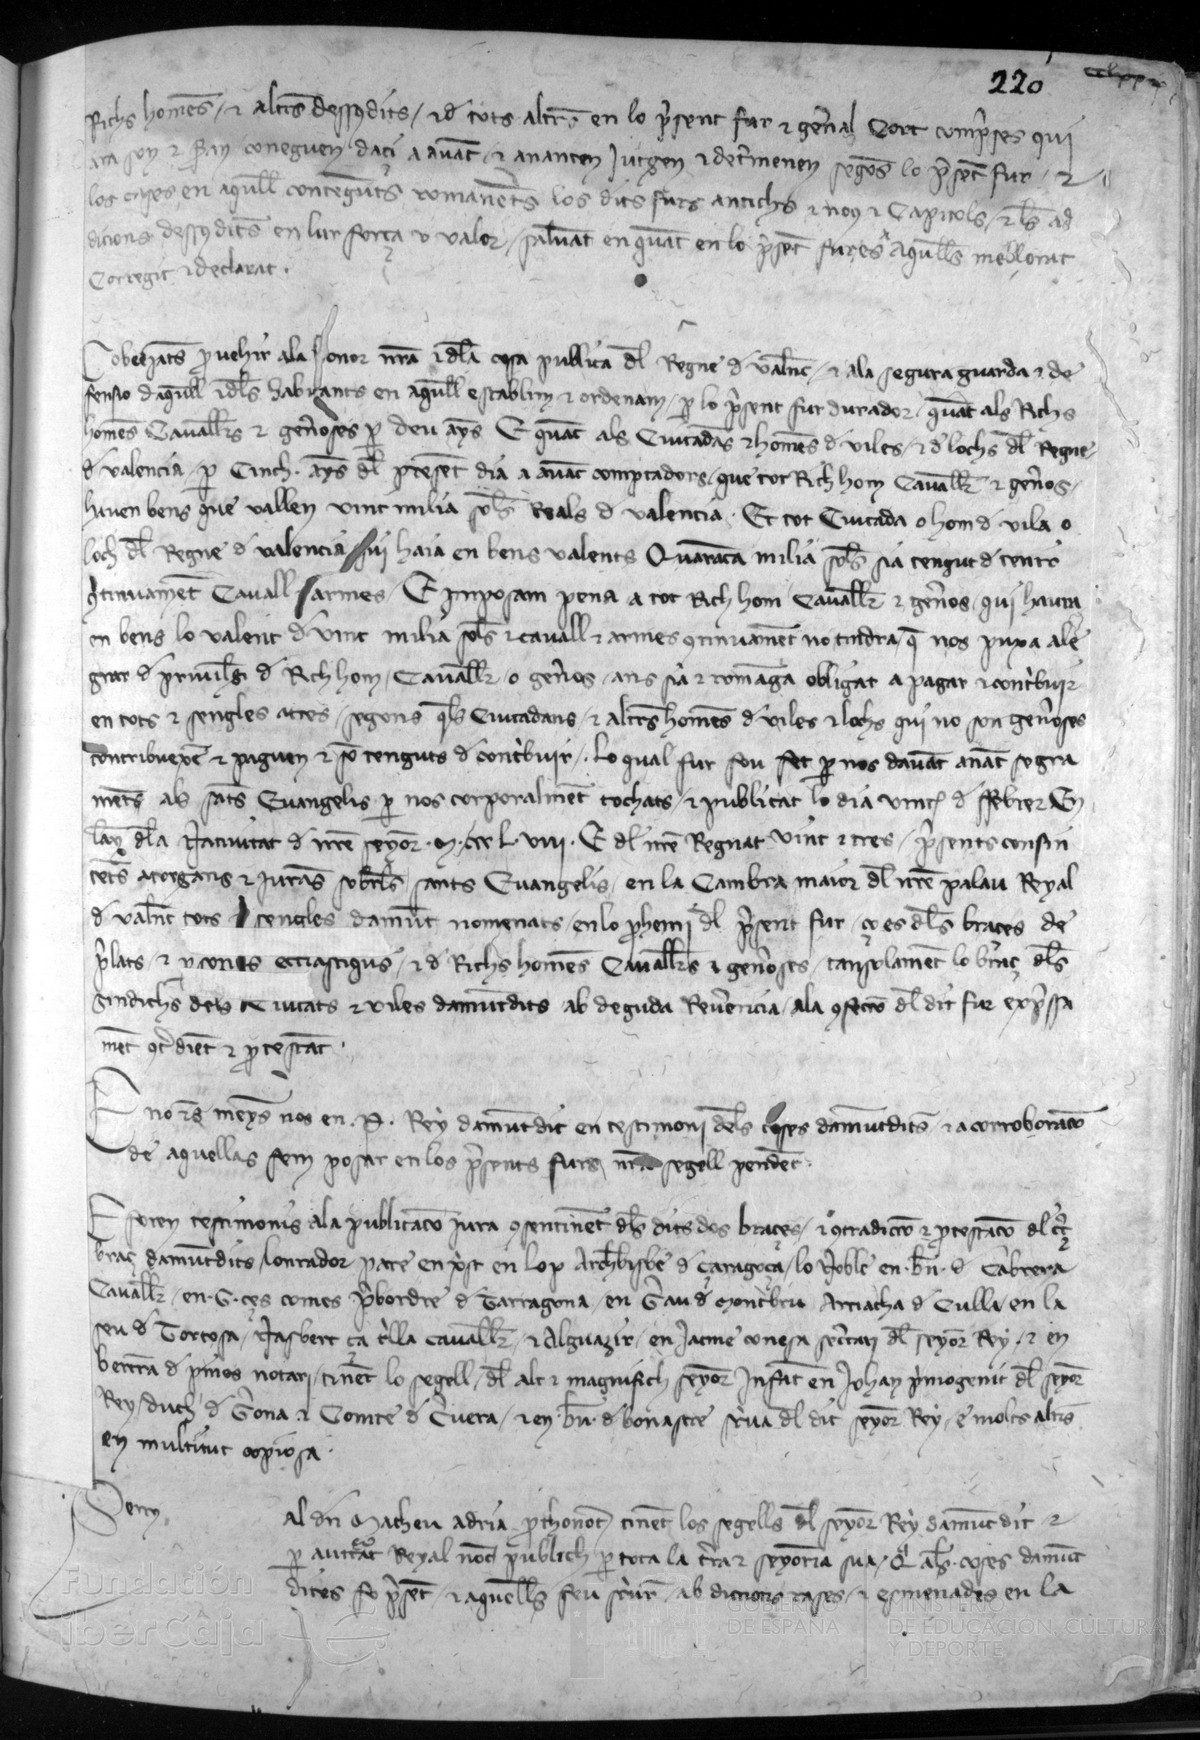 220
Richs homens / et altres dessusdits / et de tots altres en lo present fur et general Cort compreses qui
ara son et seran coneguen daci a auant / et anantен jutgen et determenen segons lo present fur / et
los casos en aquell contenguts romanents los dits furs antichs et nous et Capitols / et les ad
dicions dessusdits en lur força o valor / saluant en quant en lo present fur es aquells mellorat
Corregit et declarat .
Cobejants prouehir ala honor nostra et dela cosa publica del Regne de valencia / et ala segura guarda et de
fensio daquell et dels habitants en aquell establim et ordenam / per lo present fur durador / quant als Richs
homens Cauallers et generoses per deu anys E quant als Ciutadans et homens de viles / et de lochs del Regne
de valencia / per Cinch . anys del present dia a auant comptadors / que tot Rich hom Caualler et generos /
hauen bens que vallen vint milia sols Reals de valencia . Et tot Ciutada o hom de vila o
loch del Regne de valencia qui haia en bens valents Quaranta milia sols sia tengut de tenir
continuament Cauall et armes / E imposam pena a tot Rich hom Caualler et generos / qui haura
en bens lo valent de vint milia sols et cauall et armes continuament no tindra / que nos puxa ale
grar de priuilegi de Rich hom / Cauallers o generos / ans sia et romanga obligat a pagar et contribuir
en tots et sengles actes / segons quels Ciutadans / et altres homens de viles et lochs qui no son generoses
contribuexen et paguen et son tenguts de contribuir / . Lo qual fur fou fet per nos dauant anant segra
ments als sants Euangelis per nos corporalment tochats / et publicat lo dia vint de ffebrer En
lany dela Natiuitat de nostre senyor . M . CCC L . viii . E del nostre Regnat vint et tres / presents consin
tents atorgans et jurans sobrels sants Euangelis / en la Cambra maior del nostre palau Reyal
de valencia tots et sengles damunt nomenats / en lo prohemi del present fur / ço es dels braces de
prelats / et persones ecclesiastiques / et de Richs homens Cauallers et generoses / tansolament lo braç dels
sindichs dels Ciutats et viles damuntdits ab deguda Reuerencia / ala confeccio del dit fur expressa
ment contradient et protestant .
E no res menys nos en . P . Rey damuntdit en testimoni deles coses damuntdits et a corroboracio
de aquellas fem posar en los presents furs nostre segell pendent .
E foren testimonis ala publicacio jura consentiment dels dits dos braces / et contradiccio et protestacio del terç
braç damuntdits / lonrador pare en xrist en lop Archbisbe de Çaragoça / lo Noble en . bn . de Cabrera
Cauallers / en . G . çes comes Pabordre de Tarragona / en Grau de montbru Arciacha de Culla / en la
seu de Tortosa / Jasbert ça trilla cauallers / et Alguazir / en Jacme conesa secretari del senyor Rey / et en
bertran de pinos notari / tinent lo segell / del alt et magnifich senyor Infant en Johan primogenit del senyor
Rey / duch de Gerona et Comte de Ceruera / et en . bn . de bonastre scriua del dit senyor Rey / e molts altres
en multitut copiosa .
Seny
al den Matheu adria prothonot tinent los segells del senyor Rey damuntdit et
per auctoritat Reyal notari publich per tota la terra et senyoria sua / Qui ales coses damunt
dites fo present / et aquells feu scriure / ab dictions rases / et esmenades en la
Fundación
iberCaja
GOBIERNO
DE ESPAÑA
MINISTERIO
DE EDUCACIÓN, CULTURA
Y DEPORTE